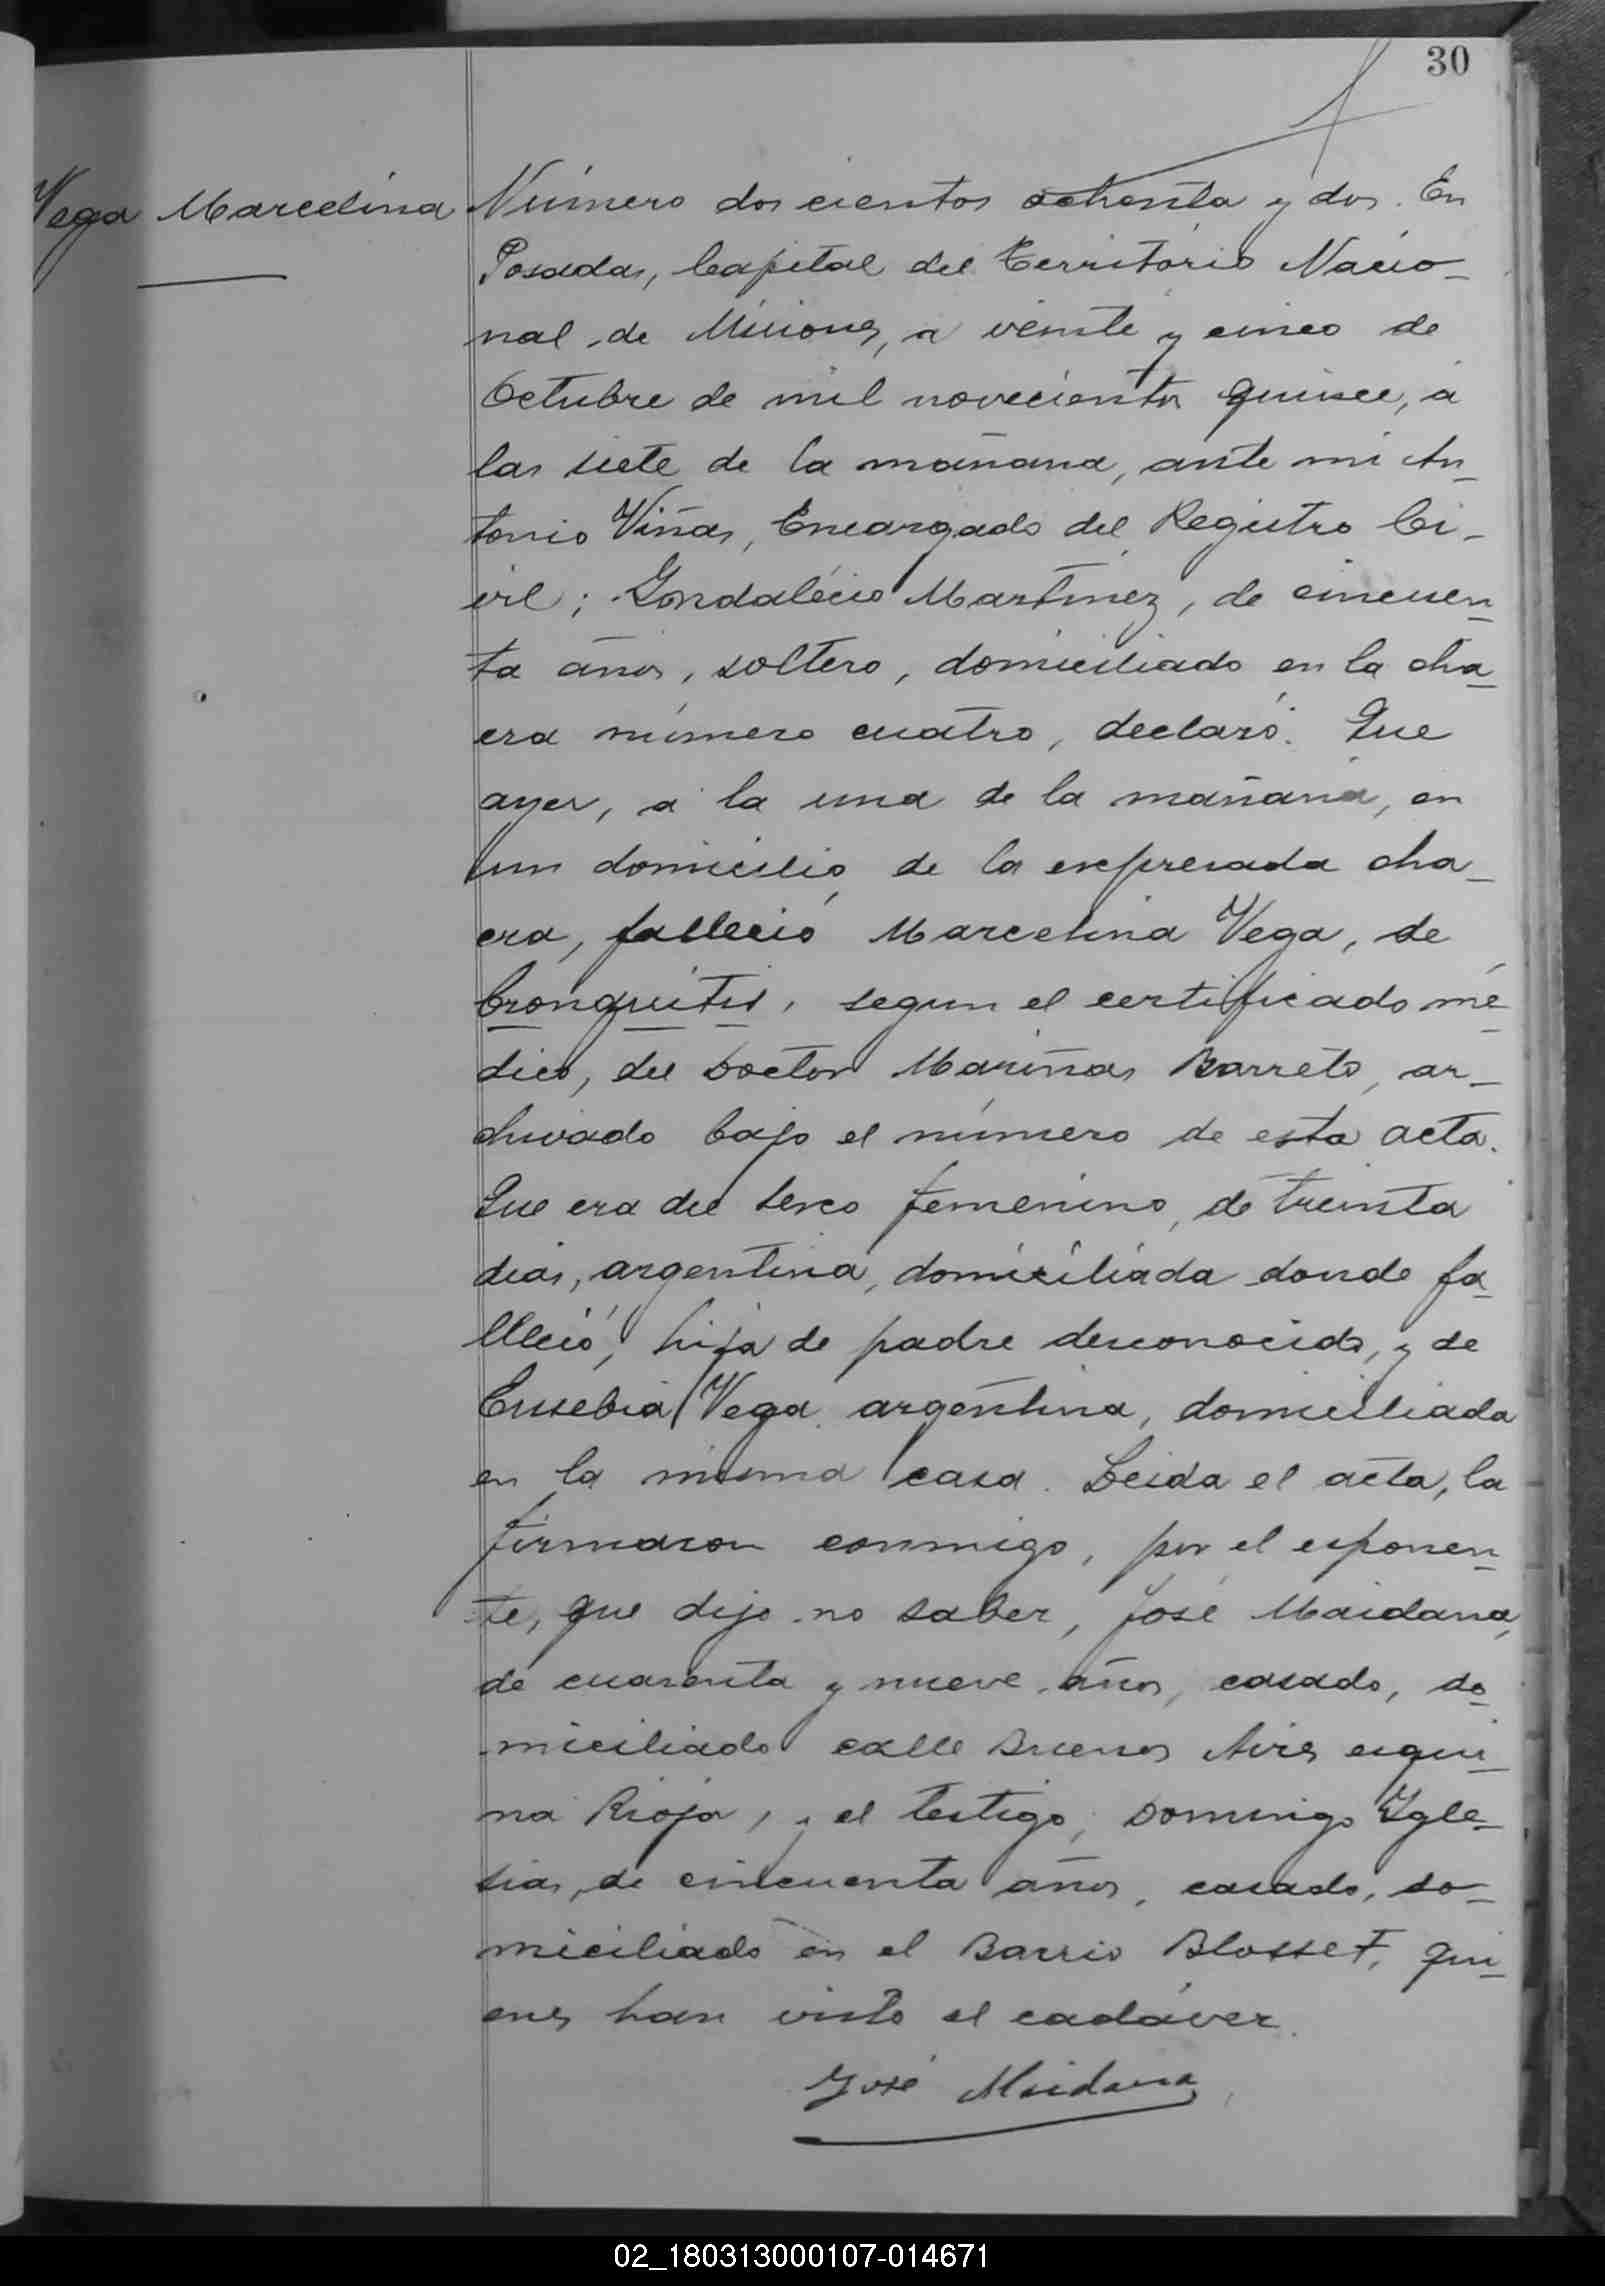 30
Vega Marcelina
Número dos cientos ochenta y dos. En
Posadas, Capital del Território Nacio-
nal de Misiones, a veinte y cinco de
Octubre de mil novecientos quince, á
las siete de la mañana, ante mi An-
tonio Viñas, Encargado del Registro Ci-
vil; Martinez, de cincuen-
ta años, soltero, domiciliado en la cha-
cra número cuatro, declaró: Que
ayer, á la una de la mañana, en
un domicilio de la expresada cha-
cra, falleció Marcelina Vega, de
bronquitis, segun el certificado mé-
dico, del Doctor Mariñas Barreto, ar-
chivado bajo el número de esta acta.
Que era del sexo femenino, de treinta
dias, argentina, domiciliada donde fa-
lleció, hija de padre desconocido, y de
Eusebia Vega argentina, domiciliada
en la misma casa. Leida el acta, la
firmaron conmigo, por el exponen-
te, que dijo no saber, José Maidana,
de cuarenta y nueve años, casado, do-
miciliado calle Buenos Aires esqui-
na Rioja, y el testigo, Domingo Igle-
sias, de cincuenta años, casado, do-
miciliado en el Barrio Blosset, qui-
enes han visto el cadáver.
José Maidana
02_180313000107-014671